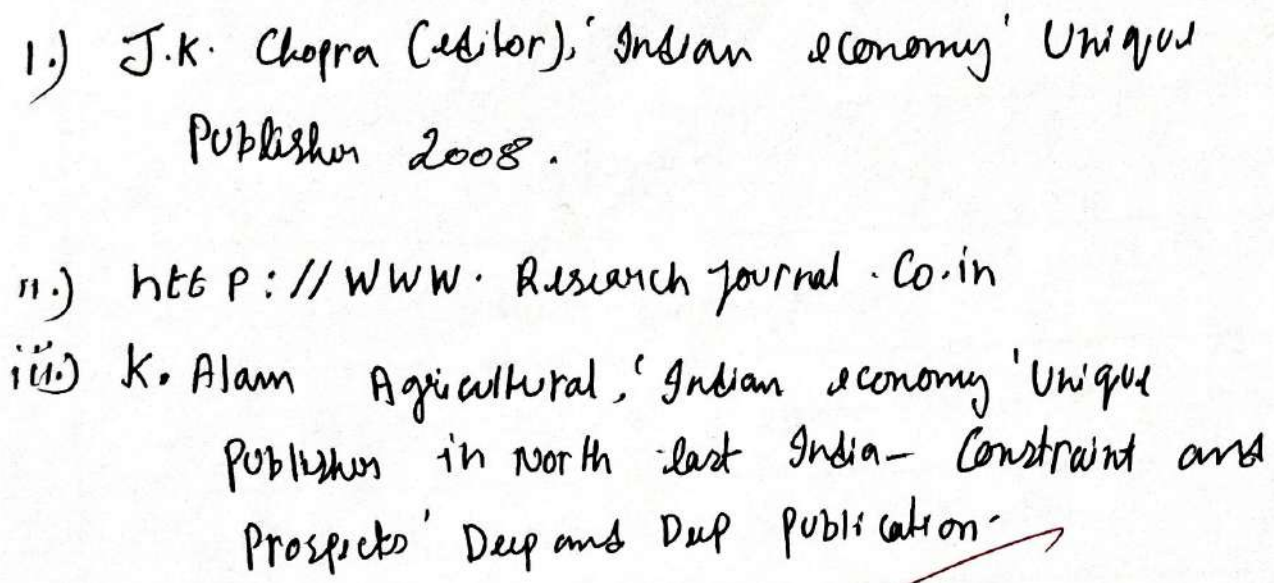 1.) J.K. Chopra (editor), 'Indian economy' Unique
Publisher 2008.
11.) http://WWW.Research Journal.Co.in
iii.) K. Alam Agricultural, 'Indian economy' Unique
Publishers in North East India - Constraint and
Prospects' Deep and Deep Publication.